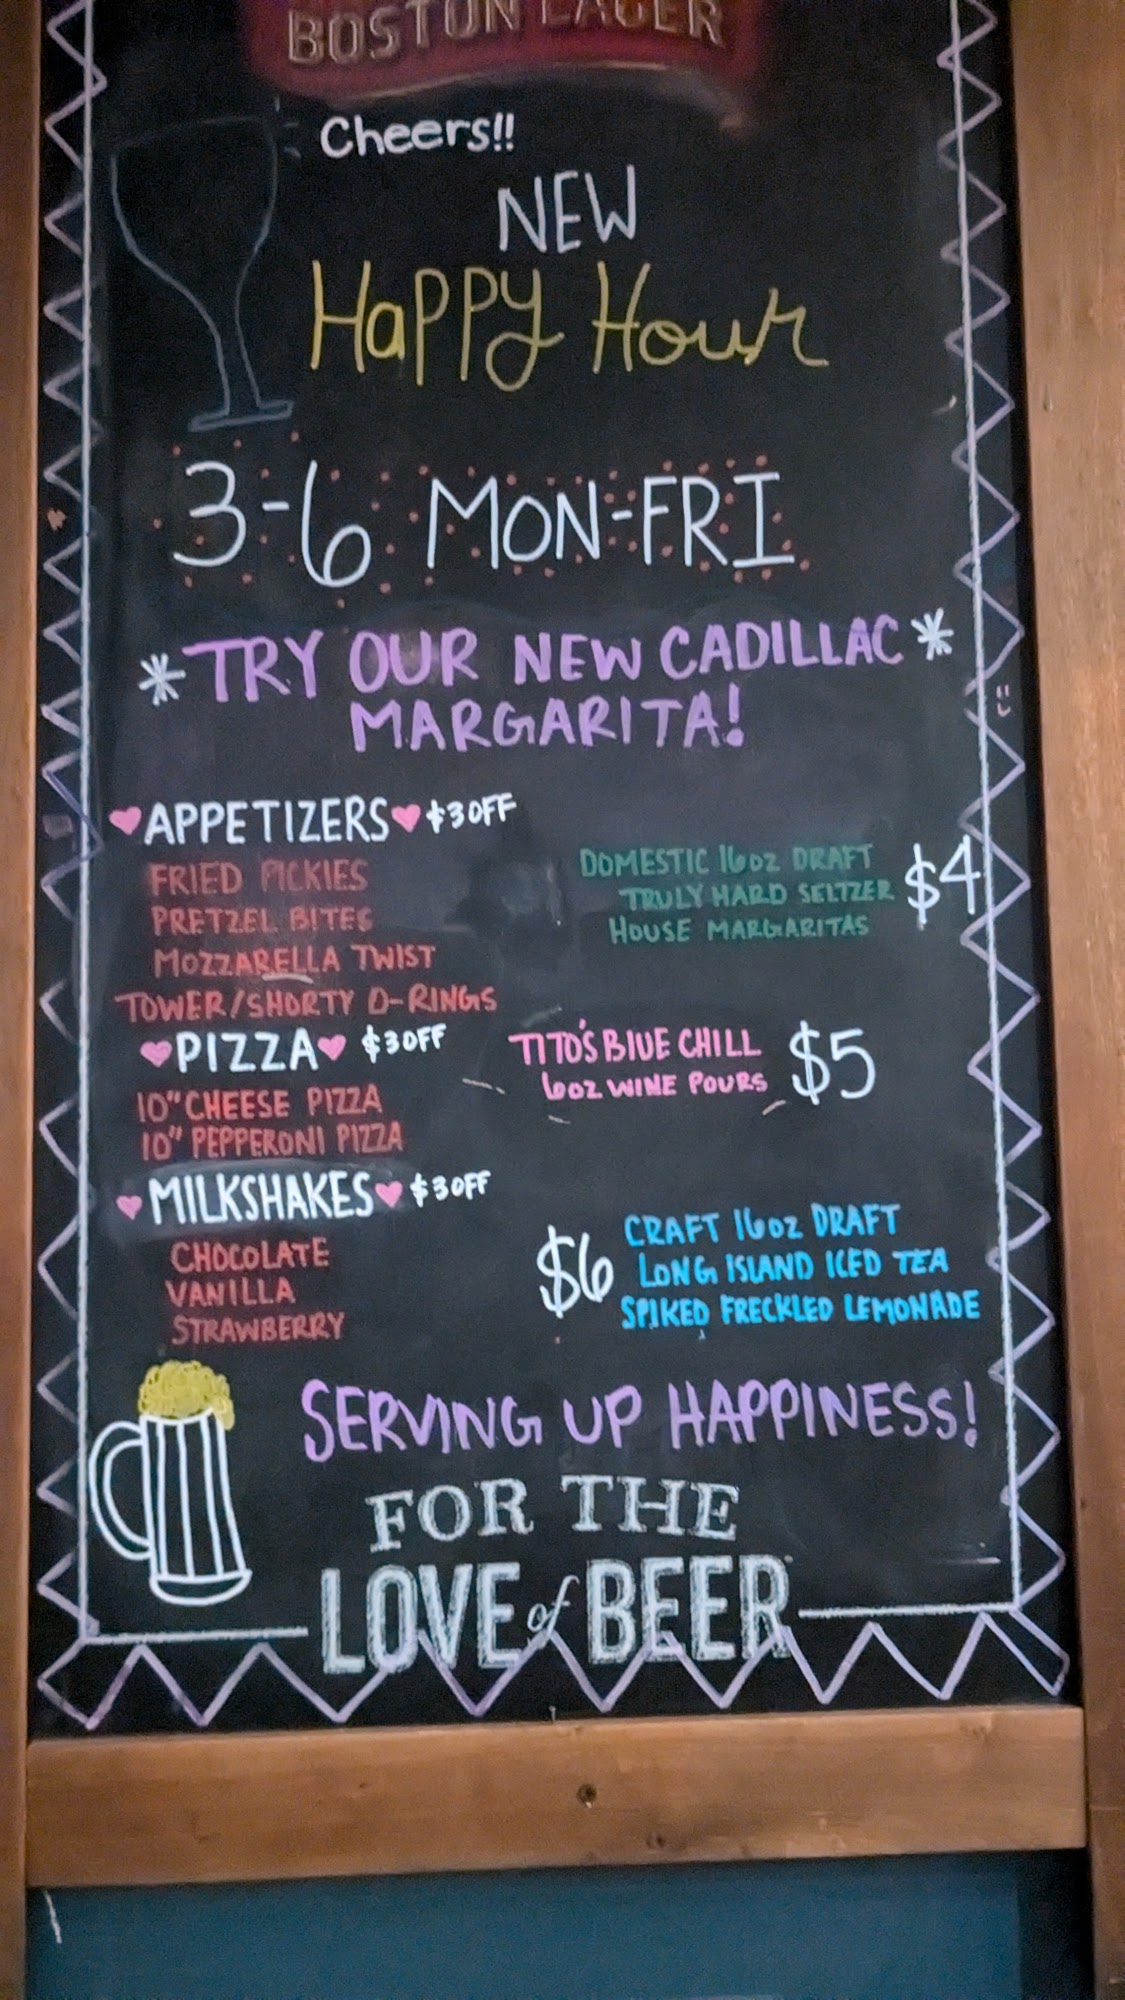 BOSTON LAGER
Cheers!!
NEW
Happy Hour
3-6 MON-FRI
*TRY OUR NEW CADILLAC*
MARGARITA!
♥APPETIZERS♥ $3 OFF
FRIED PICKIES
PRETZEL BITES
MOZZARELLA TWIST
TOWER/SHORTY O-RINGS
♥PIZZA♥ $3 OFF
10" CHEESE PIZZA
10" PEPPERONI PIZZA
♥MILKSHAKES♥ $3 OFF
CHOCOLATE
VANILLA
STRAWBERRY
DOMESTIC 16oz DRAFT
TRULY HARD SELTZER $4
HOUSE MARGARITAS
TITO'S BLUE CHILL
6oz WINE POURS $5
CRAFT 16oz DRAFT
$6 LONG ISLAND ICED TEA
SPIKED FRECKLED LEMONADE
SERVING UP HAPPINESS!
FOR THE
LOVE of BEER